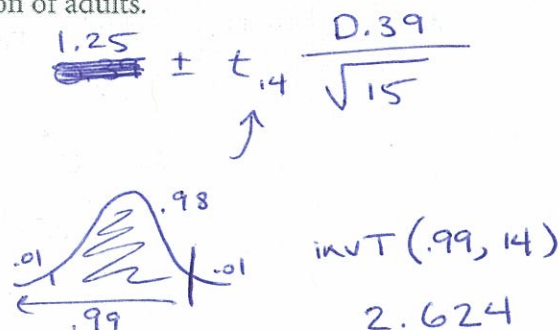 on of adults.
1.25 ± t14 0.39
√15
.98
.01 .01
.99
invT (.99, 14)
2.624